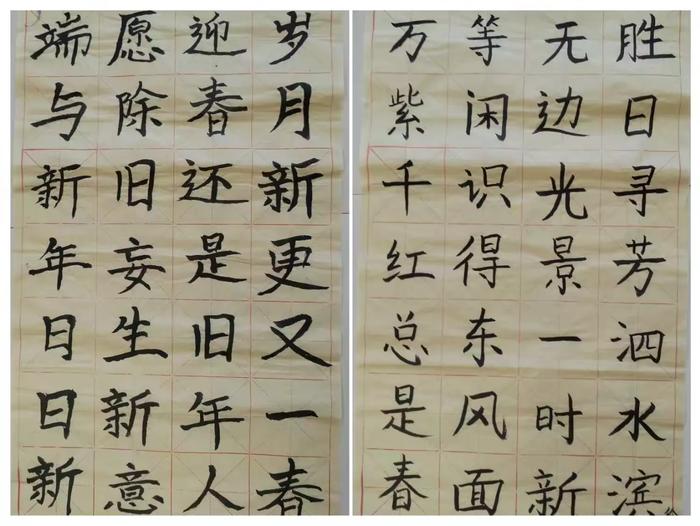 岁月新更又一春
迎春还是旧年人
愿除旧妄生新意
端与新年日日新
胜日寻芳泗水滨
无边光景一时新
等闲识得东风面
万紫千红总是春